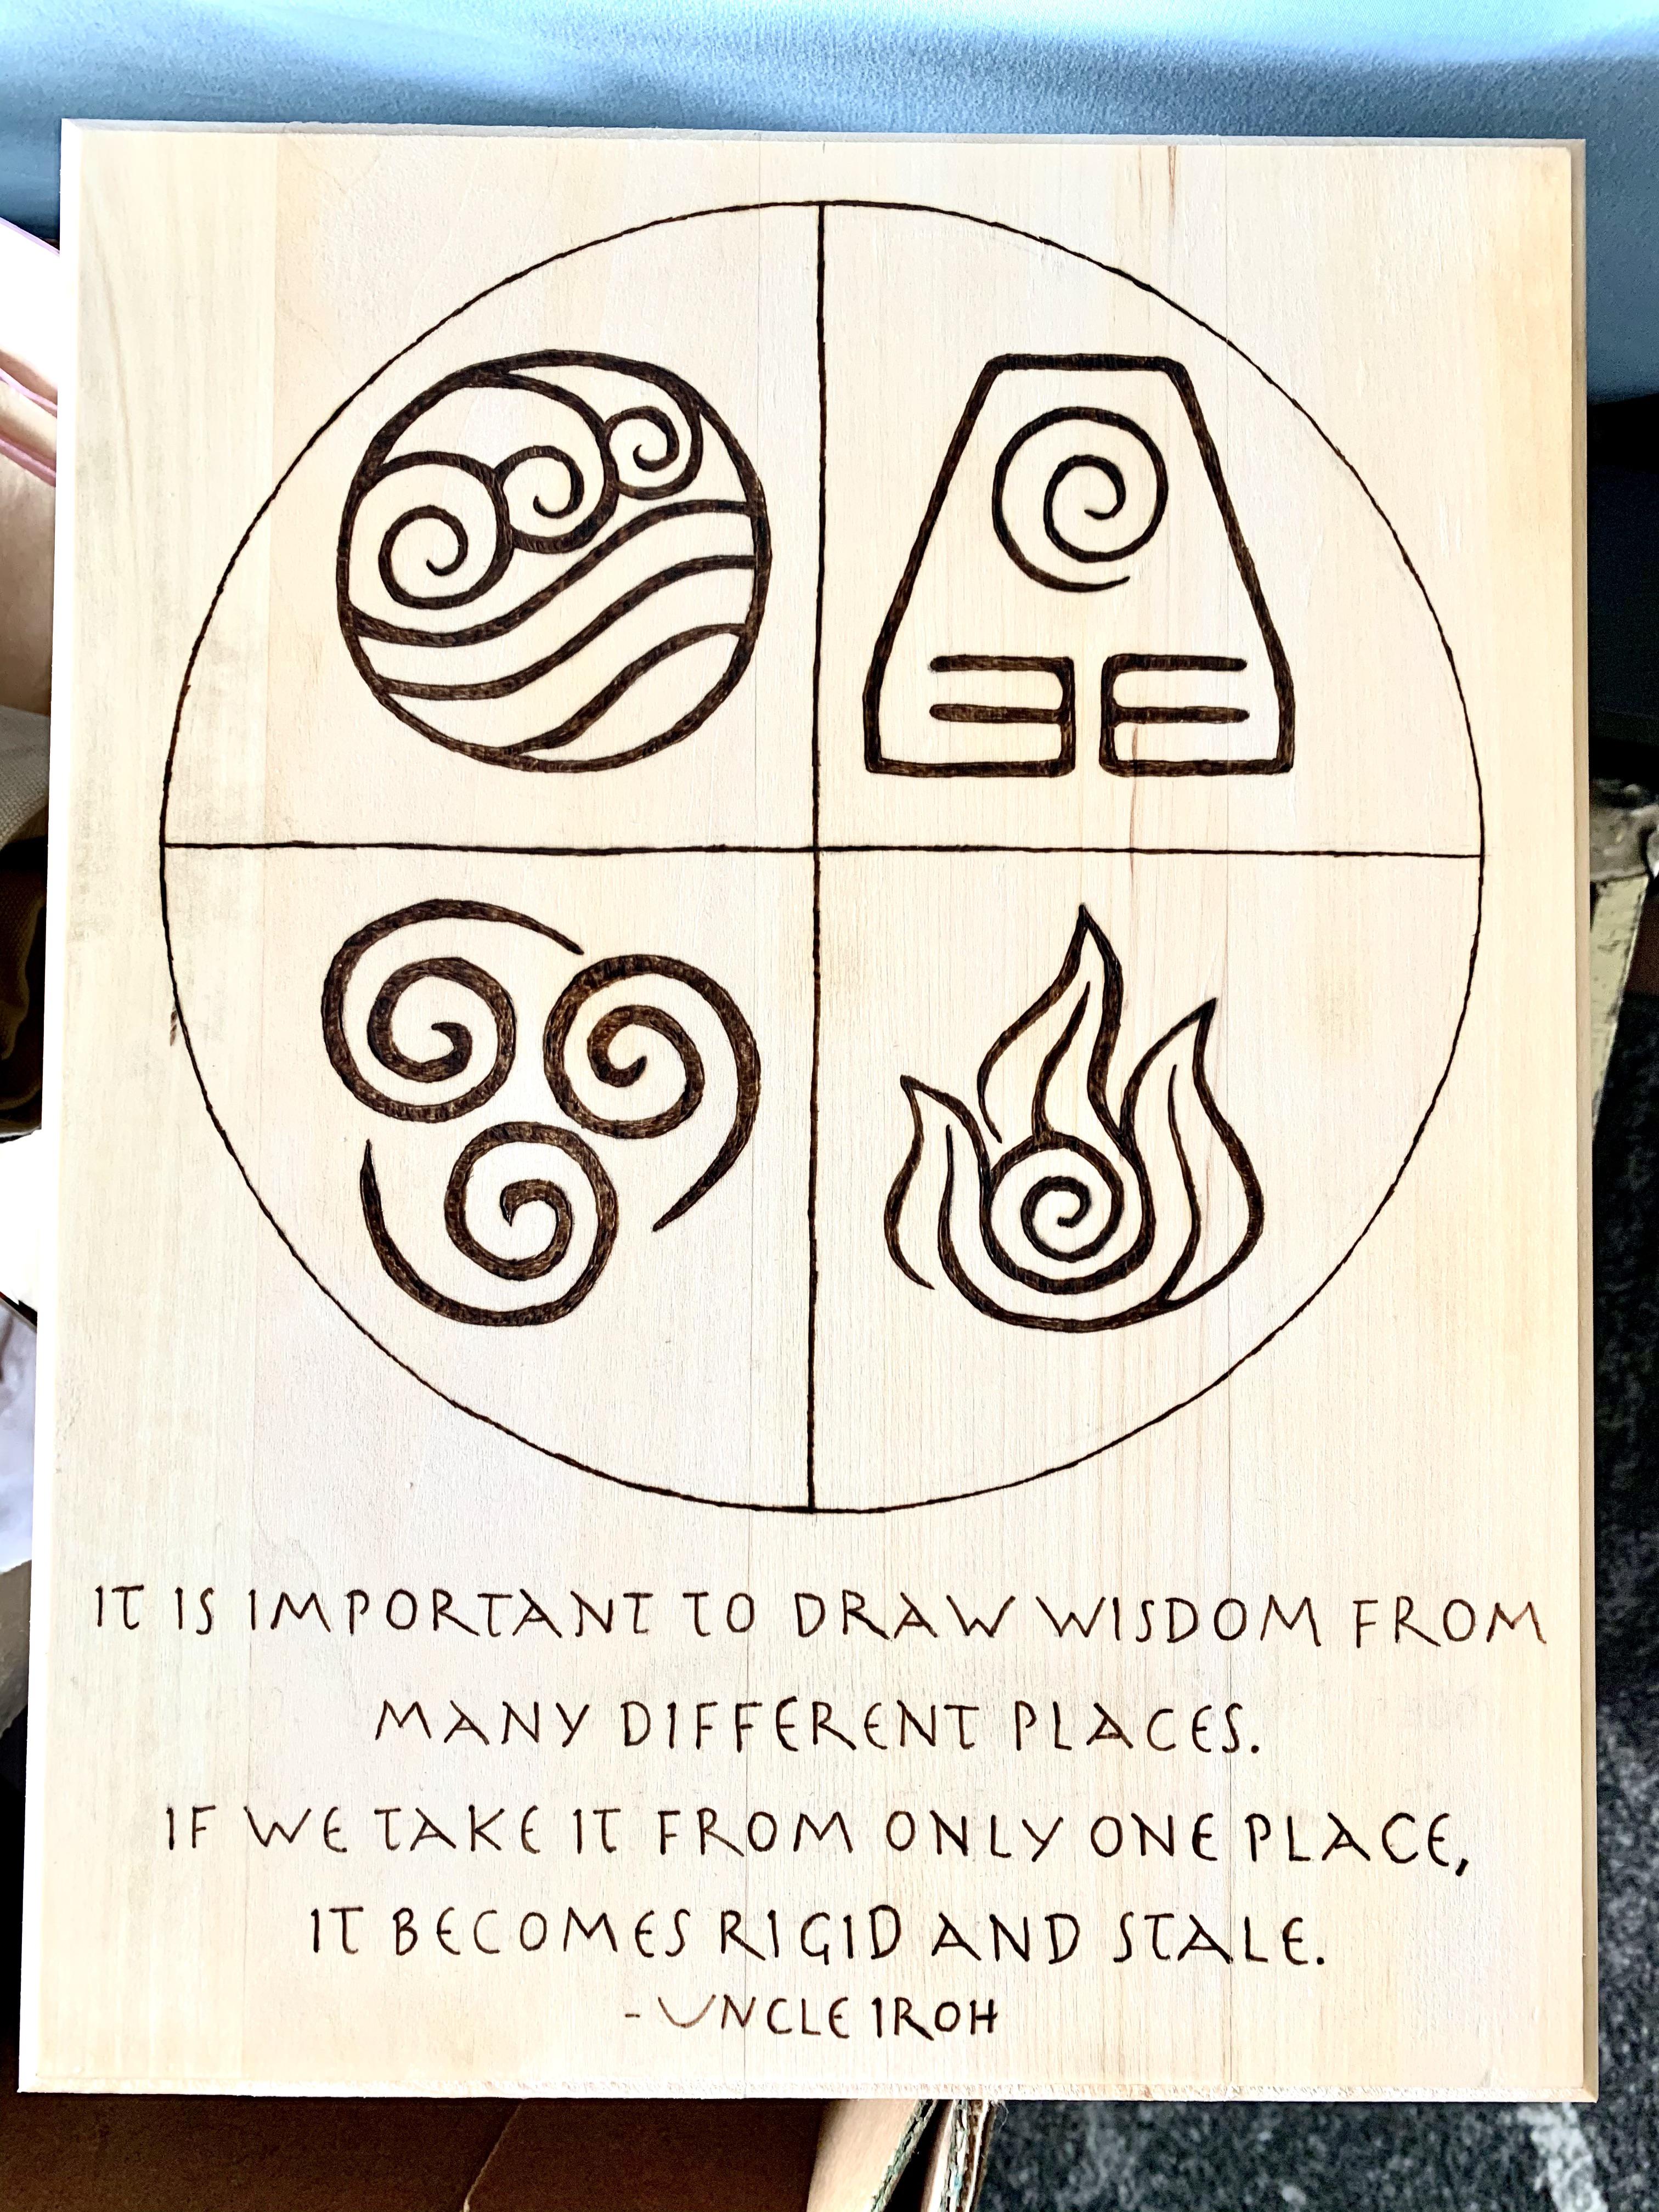 IT IS IMPORTANT TO DRAW WISDOM FROM
MANY DIFFERENT PLACES.
IF WE TAKE IT FROM ONLY ONE PLACE,
IT BECOMES RIGID AND STALE.
- UNCLE IROH